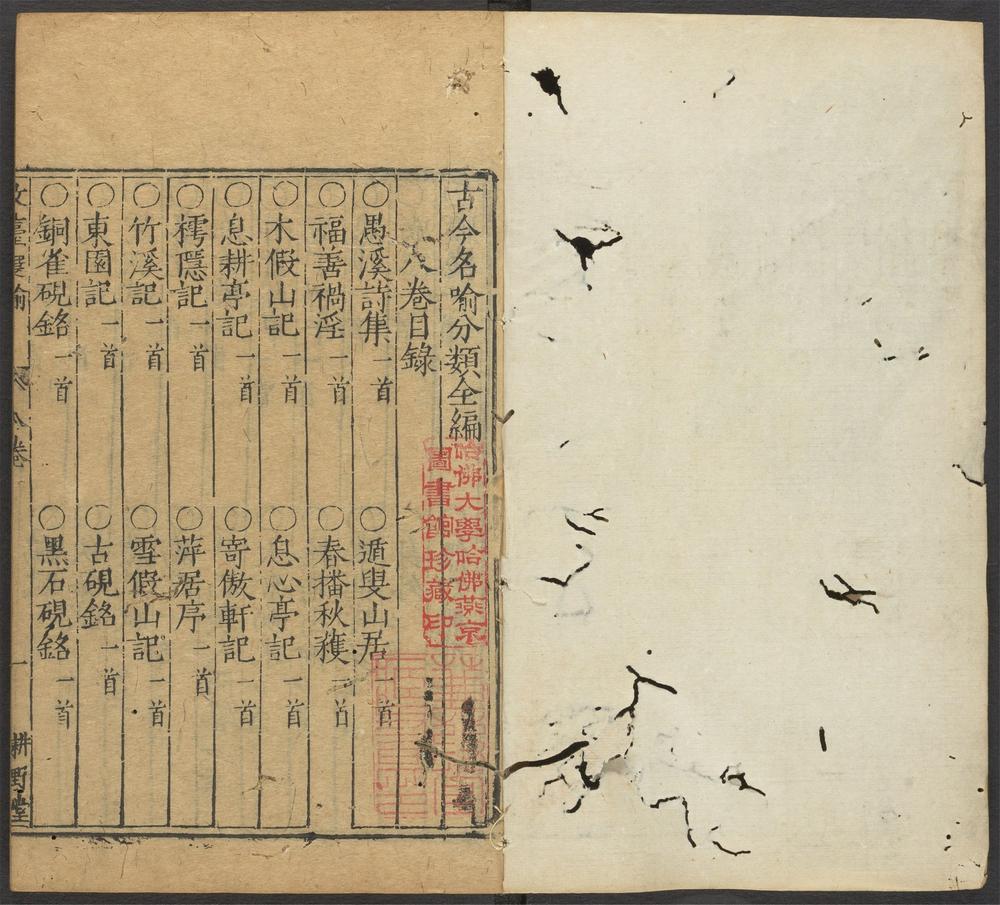 古今名喻分類全編
八卷目錄
○愚溪詩集一首
○遁叟山居一首
○福善禍淫一首
○春播秋穫一首
○木假山記一首
○息心亭記一首
○息耕亭記一首
○寄傲軒記一首
○樗隱記一首
○萍居序一首
○竹溪記一首
○雪假山記一首
○東園記一首
○古硯銘一首
○銅雀硯銘一首
○黑石硯銘一首
八卷
一
耕野堂
哈佛大學哈佛燕京
圖書館珍藏印